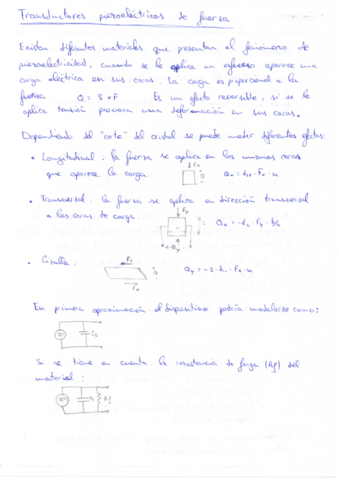 Transductores piezoeléctricos de fuerza
Existen diferentes materiales que presentan el fenómeno de
piezoelectricidad, cuando se le aplica un esfuerzo aparece una
carga eléctrica en sus caras. La carga es proporcional a la
fuerza Q = S * F Es un efecto reversible, si se le
aplica tensión provoca una deformación en sus caras.
Dependiendo del "corte" del cristal se puede medir diferentes efectos:
• Longitudinal: la fuerza se aplica en las mismas caras
que aparece la carga.
• Transversal: la fuerza se aplica en dirección transversal
a las caras de carga.
• Cizalla:
En primera aproximación el dispositivo podría modelarse como:
Si se tiene en cuenta la resistencia de fuga (Rf) del
material: